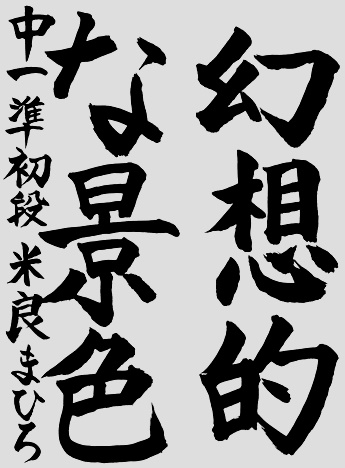 幻想的
な景色
中一準初段米良まひろ